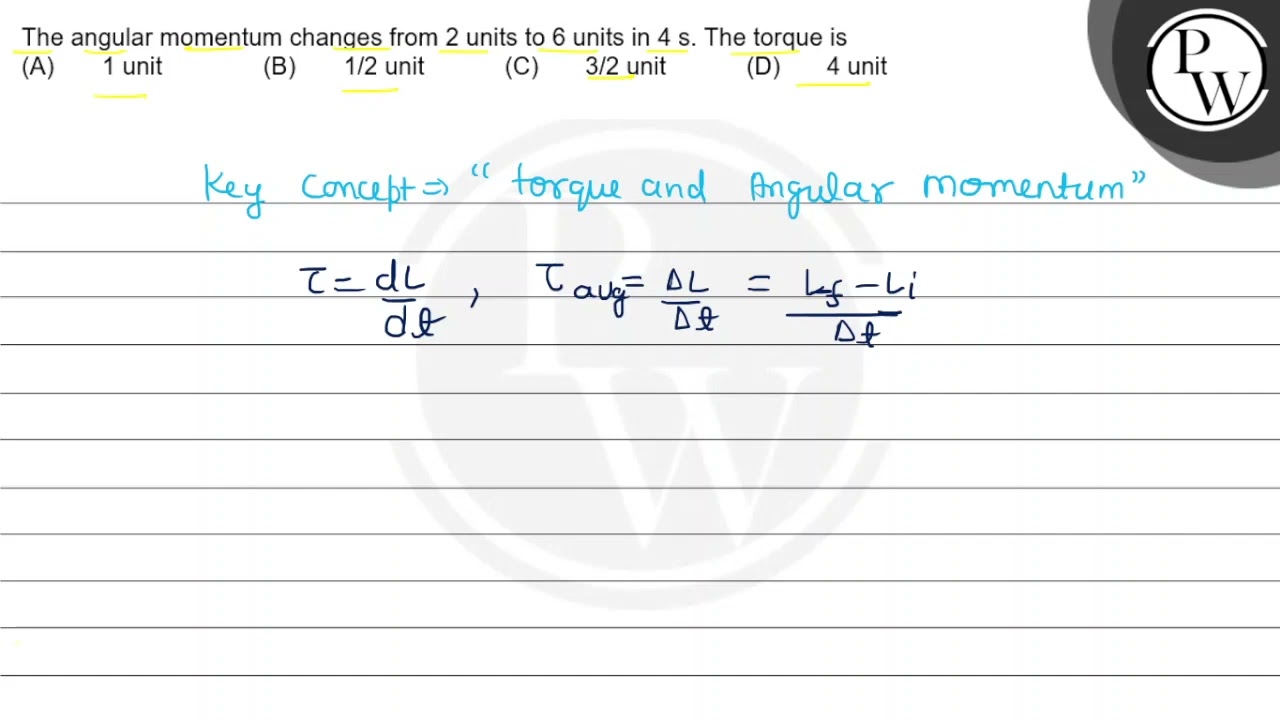 The angular momentum changes from 2 units to 6 units in 4 s. The torque is
(A) 1 unit (B) 1/2 unit (C) 3/2 unit (D) 4 unit
P
W
Key Concept ⇒ “ torque and Angular momentum”
τ = dL/dt , τavg = ΔL/Δt = Lf - Li/Δt
P
W